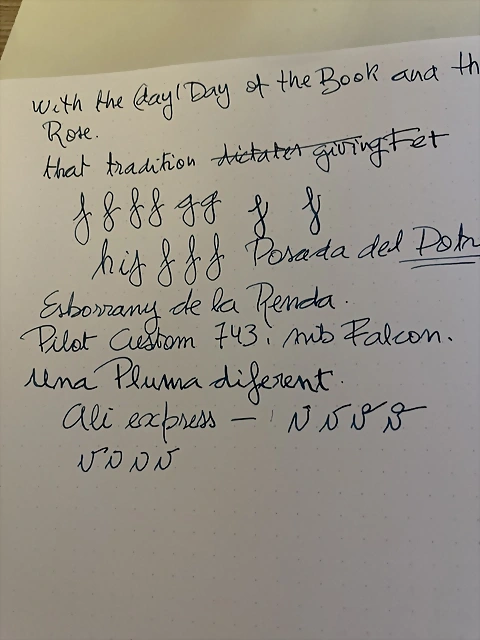 with the day/Day of the Book and th
Rose.
that tradition dictates giving Fet
f f f f g g f f
his f f f Posada del Dotr
Esborrany de la Renda.
Pilot Custom 743, nib Falcon.
Una Pluma diferent.
Ali express — v v v v
v v v v